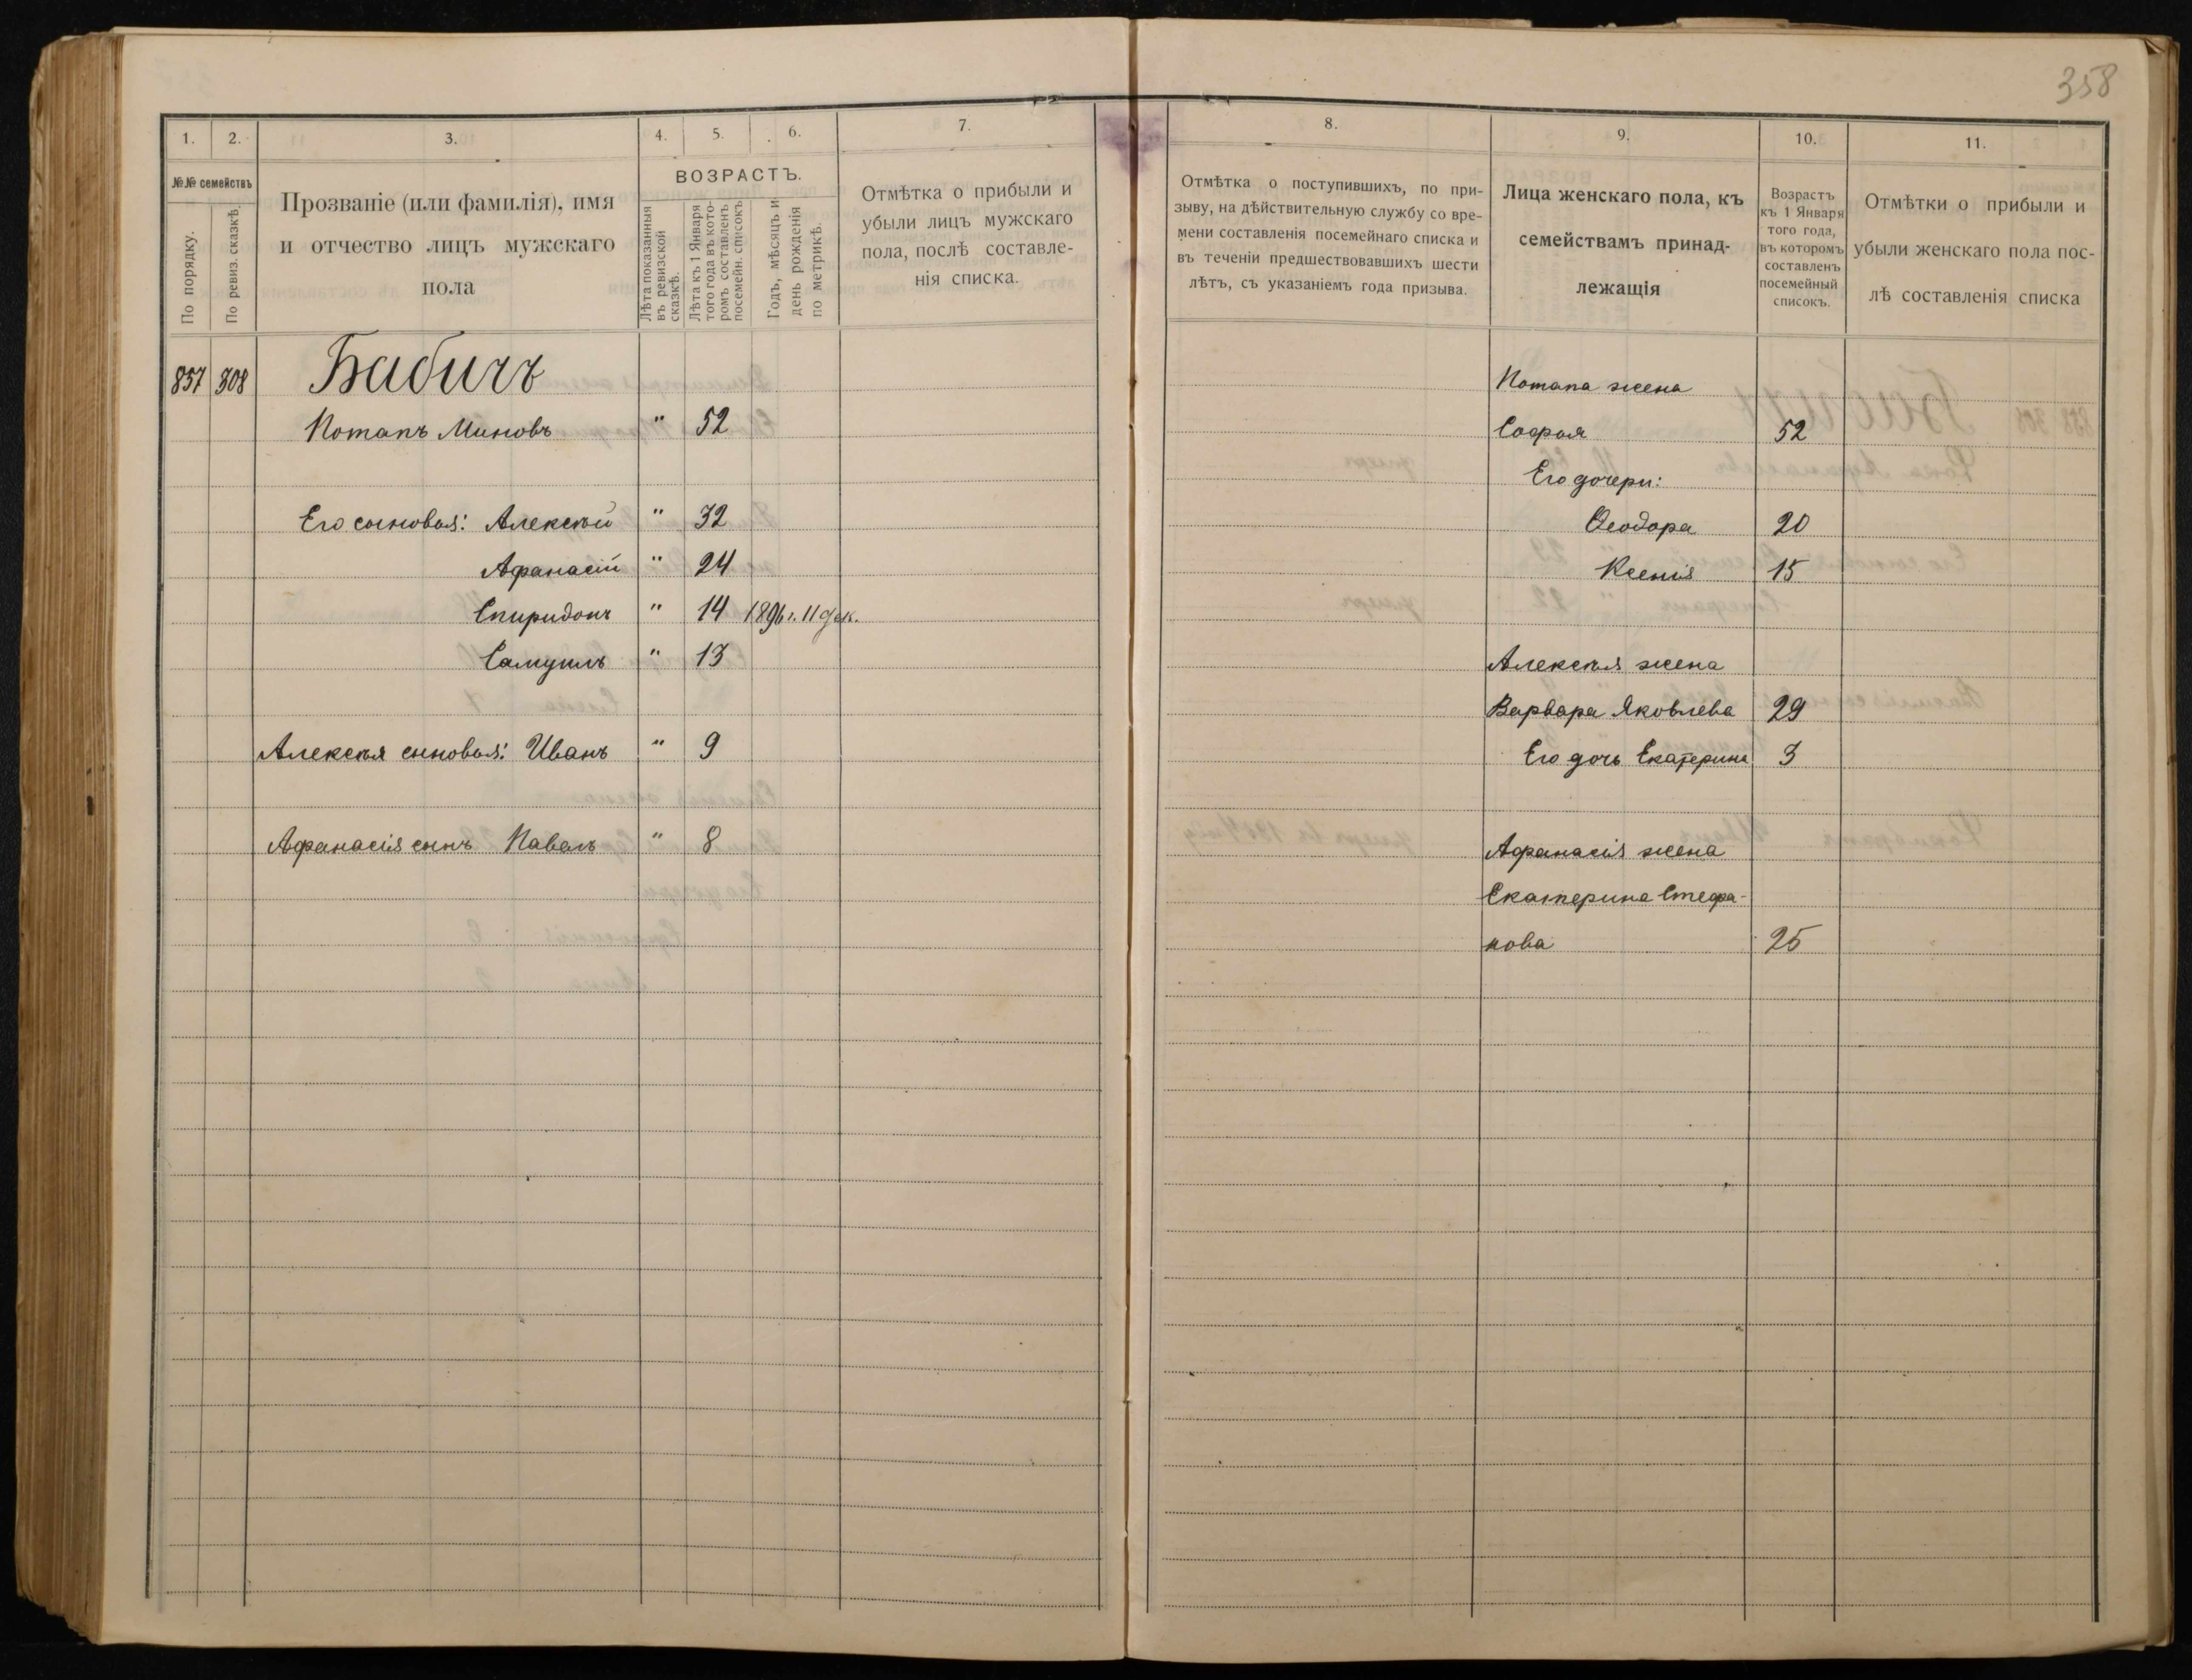 358
1. 2. 3. 4. 5. 6. 7.
№№ семействъ
По порядку.
По ревиз. сказкѣ.
Прозваніе (или фамилія), имя
и отчество лицъ мужскаго
пола
ВОЗРАСТЪ.
Лѣта показанныя
въ ревизской
сказкѣ.
Лѣта къ 1 Января
того года въ кото-
ромъ составленъ
посемейн. списокъ
Годъ, мѣсяцъ и
день рожденія
по метрикѣ.
Отмѣтка о прибыли и
убыли лицъ мужскаго
пола, послѣ составле-
нія списка.
857 308 Бабичъ
Потапъ Миновъ " 52
Его сыновья: Алексѣй " 32
Афанасій " 24
Спиридонъ " 14 1896 г. 11 дек.
Самуилъ " 13
Алексѣя сыновья: Иванъ " 9
Афанасія сынъ Павелъ " 8
8. 9. 10. 11.
Отмѣтка о поступившихъ, по при-
зыву, на дѣйствительную службу со вре-
мени составленія посемейнаго списка и
въ теченіи предшествовавшихъ шести
лѣтъ, съ указаніемъ года призыва.
Лица женскаго пола, къ
семействамъ принад-
лежащія
Возрастъ
къ 1 Января
того года,
въ которомъ
составленъ
посемейный
списокъ.
Отмѣтки о прибыли и
убыли женскаго пола пос-
лѣ составленія списка
Потапа жена
Софья 52
Его дочери:
Ѳеодора 20
Ксенія 15
Алексѣя жена
Варвара Яковлева 29
Его дочь Екатерина 3
Афанасія жена
Екатерина Стефа-
нова 25